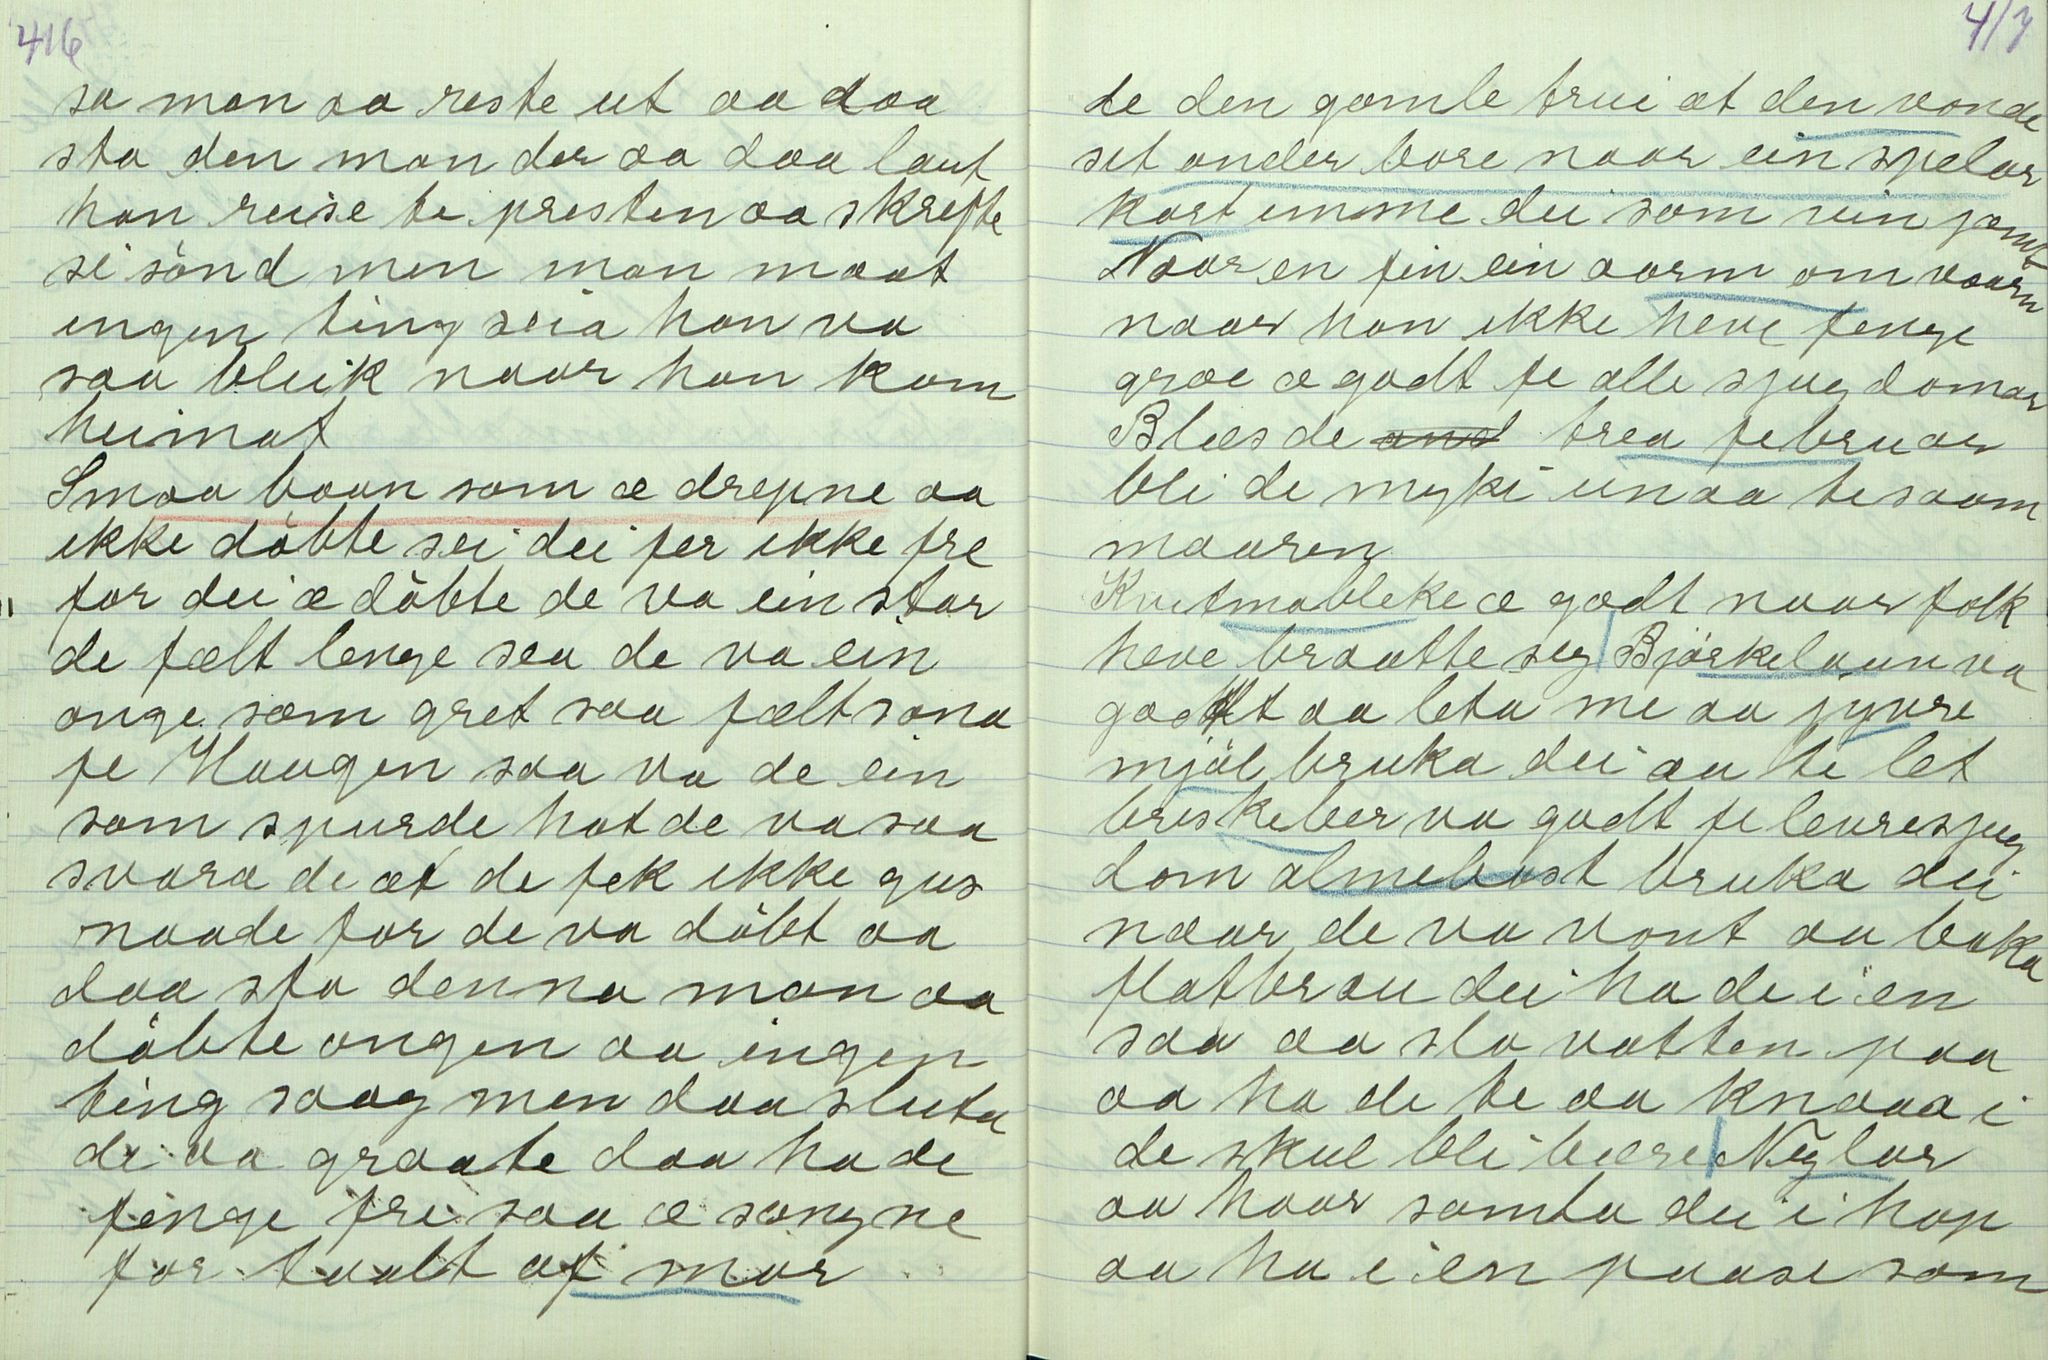 416
sa man aa reste ut aa daa
sta den man der aa daa laut
han reise te presten aa skrefte
si sönd men man maat
ingen ting seia han va
saa bleik naar han kom
heimat
Smaa baan som æ drepne aa
ikke döbte sei dei fer ikke fre
for dei æ döbte de va ein stor
de fælt lenge sea de va ein
onge som gret saa fælt sona
fe Haugen saa va de ein
som spurde hot de va saa
svara de at de fek ikke gus
naade for de va döbt aa
daa sta denna man aa
döbte ongen aa ingen
ting saag men daa sluta
de va graate daa ha de
fenge fre saa æ songne
for taalt af mor
417
te den gamle trui at den vonde
set onder bore naar ein spelar
kort imme dei som rein jamt
Naar en fin ein aarm om vaarn
naar han ikke heve fenge
græe æ godt fe alle sjugdomar
Blæs de trea februar
bli de myki unaa te saam
maaren
Kvitmableke æ godt naar folk
heve braatte seg Björkelaun va
godt aa leta me aa jyvre
mjöl bruka dei aa te let
briskeber va godt fe levresjug
dom almebast bruka dei
naar de va vont aa baka
flatbrau dei ha de i en
saa aa sla vatten paa
aa ha de te aa knaaa i
de skul bli beere Neglar
aa haar samla dei i hop
aa ha i en paase som